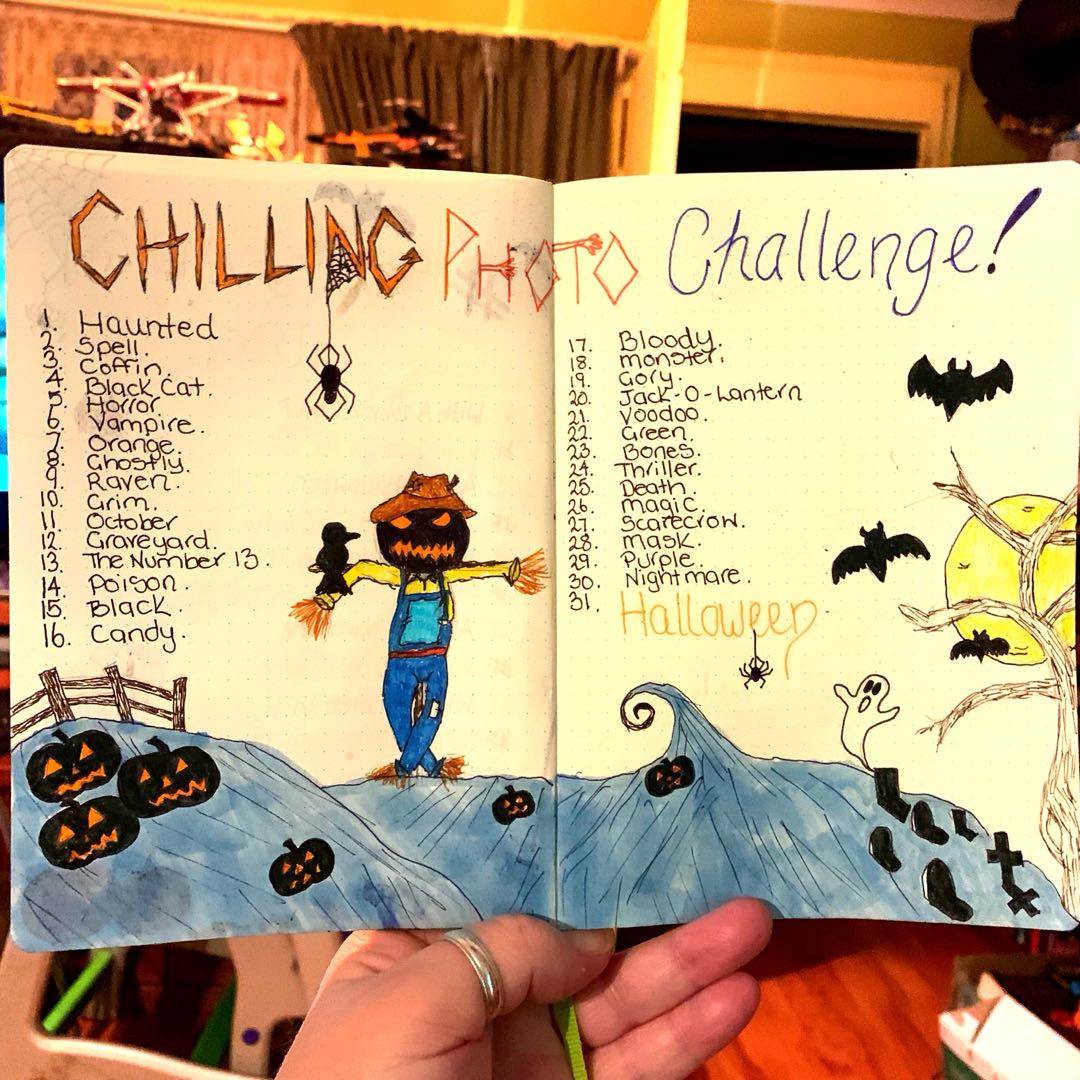 CHILLING PHOTO Challenge!
1. Haunted
2. Spell.
3. Coffin.
4. Black Cat.
5. Horror.
6. Vampire.
7. Orange.
8. Ghostly.
9. Raven.
10. Grim.
11. October
12. Graveyard.
13. The Number 13.
14. Poison.
15. Black
16. Candy.
17. Bloody.
18. monster.
19. Gory.
20. Jack-O-Lantern
21. Voodoo.
22. Green.
23. Bones.
24. Thriller.
25. Death.
26. Magic.
27. Scarecrow.
28. Mask.
29. Purple.
30. Nightmare.
31. Halloween